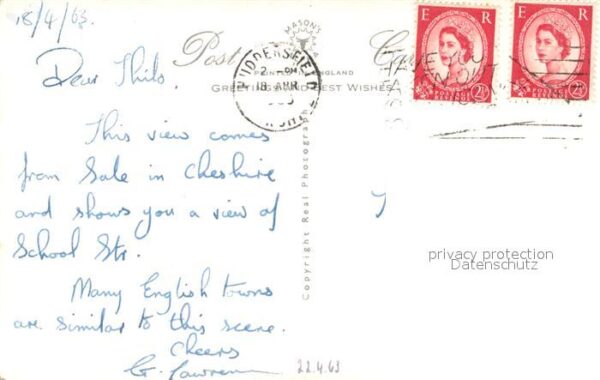 18/4/63.
MASON'S
Post Card
PRINTED IN ENGLAND
GREETINGS AND BEST WISHES
HUDDERSFIELD
2 - PM
18 APR
E R
POSTAGE REVENUE
2½D
E R
POSTAGE REVENUE
2½D
Dear Thilo,
This view comes
from Sale in Cheshire
and shows you a view of
School Str.
Many English towns
are similar to this scene.
Cheers
G.
Copyright Real Photograph
privacy protection
Datenschutz
22.4.63